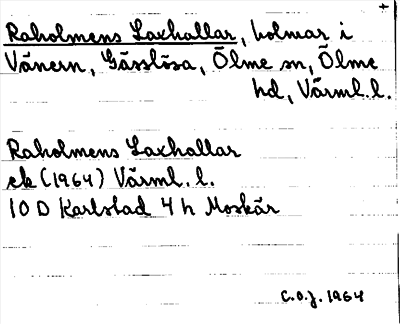 +
Raholmens Laxhallar, holmar i
Vänern, Gässlösa, Ölme sn, Ölme
hd, Värml. l.
Raholmens Laxhallar
ek (1964) Värml. l.
10 D Karlstad 4 h Moskär
C.O.J. 1964